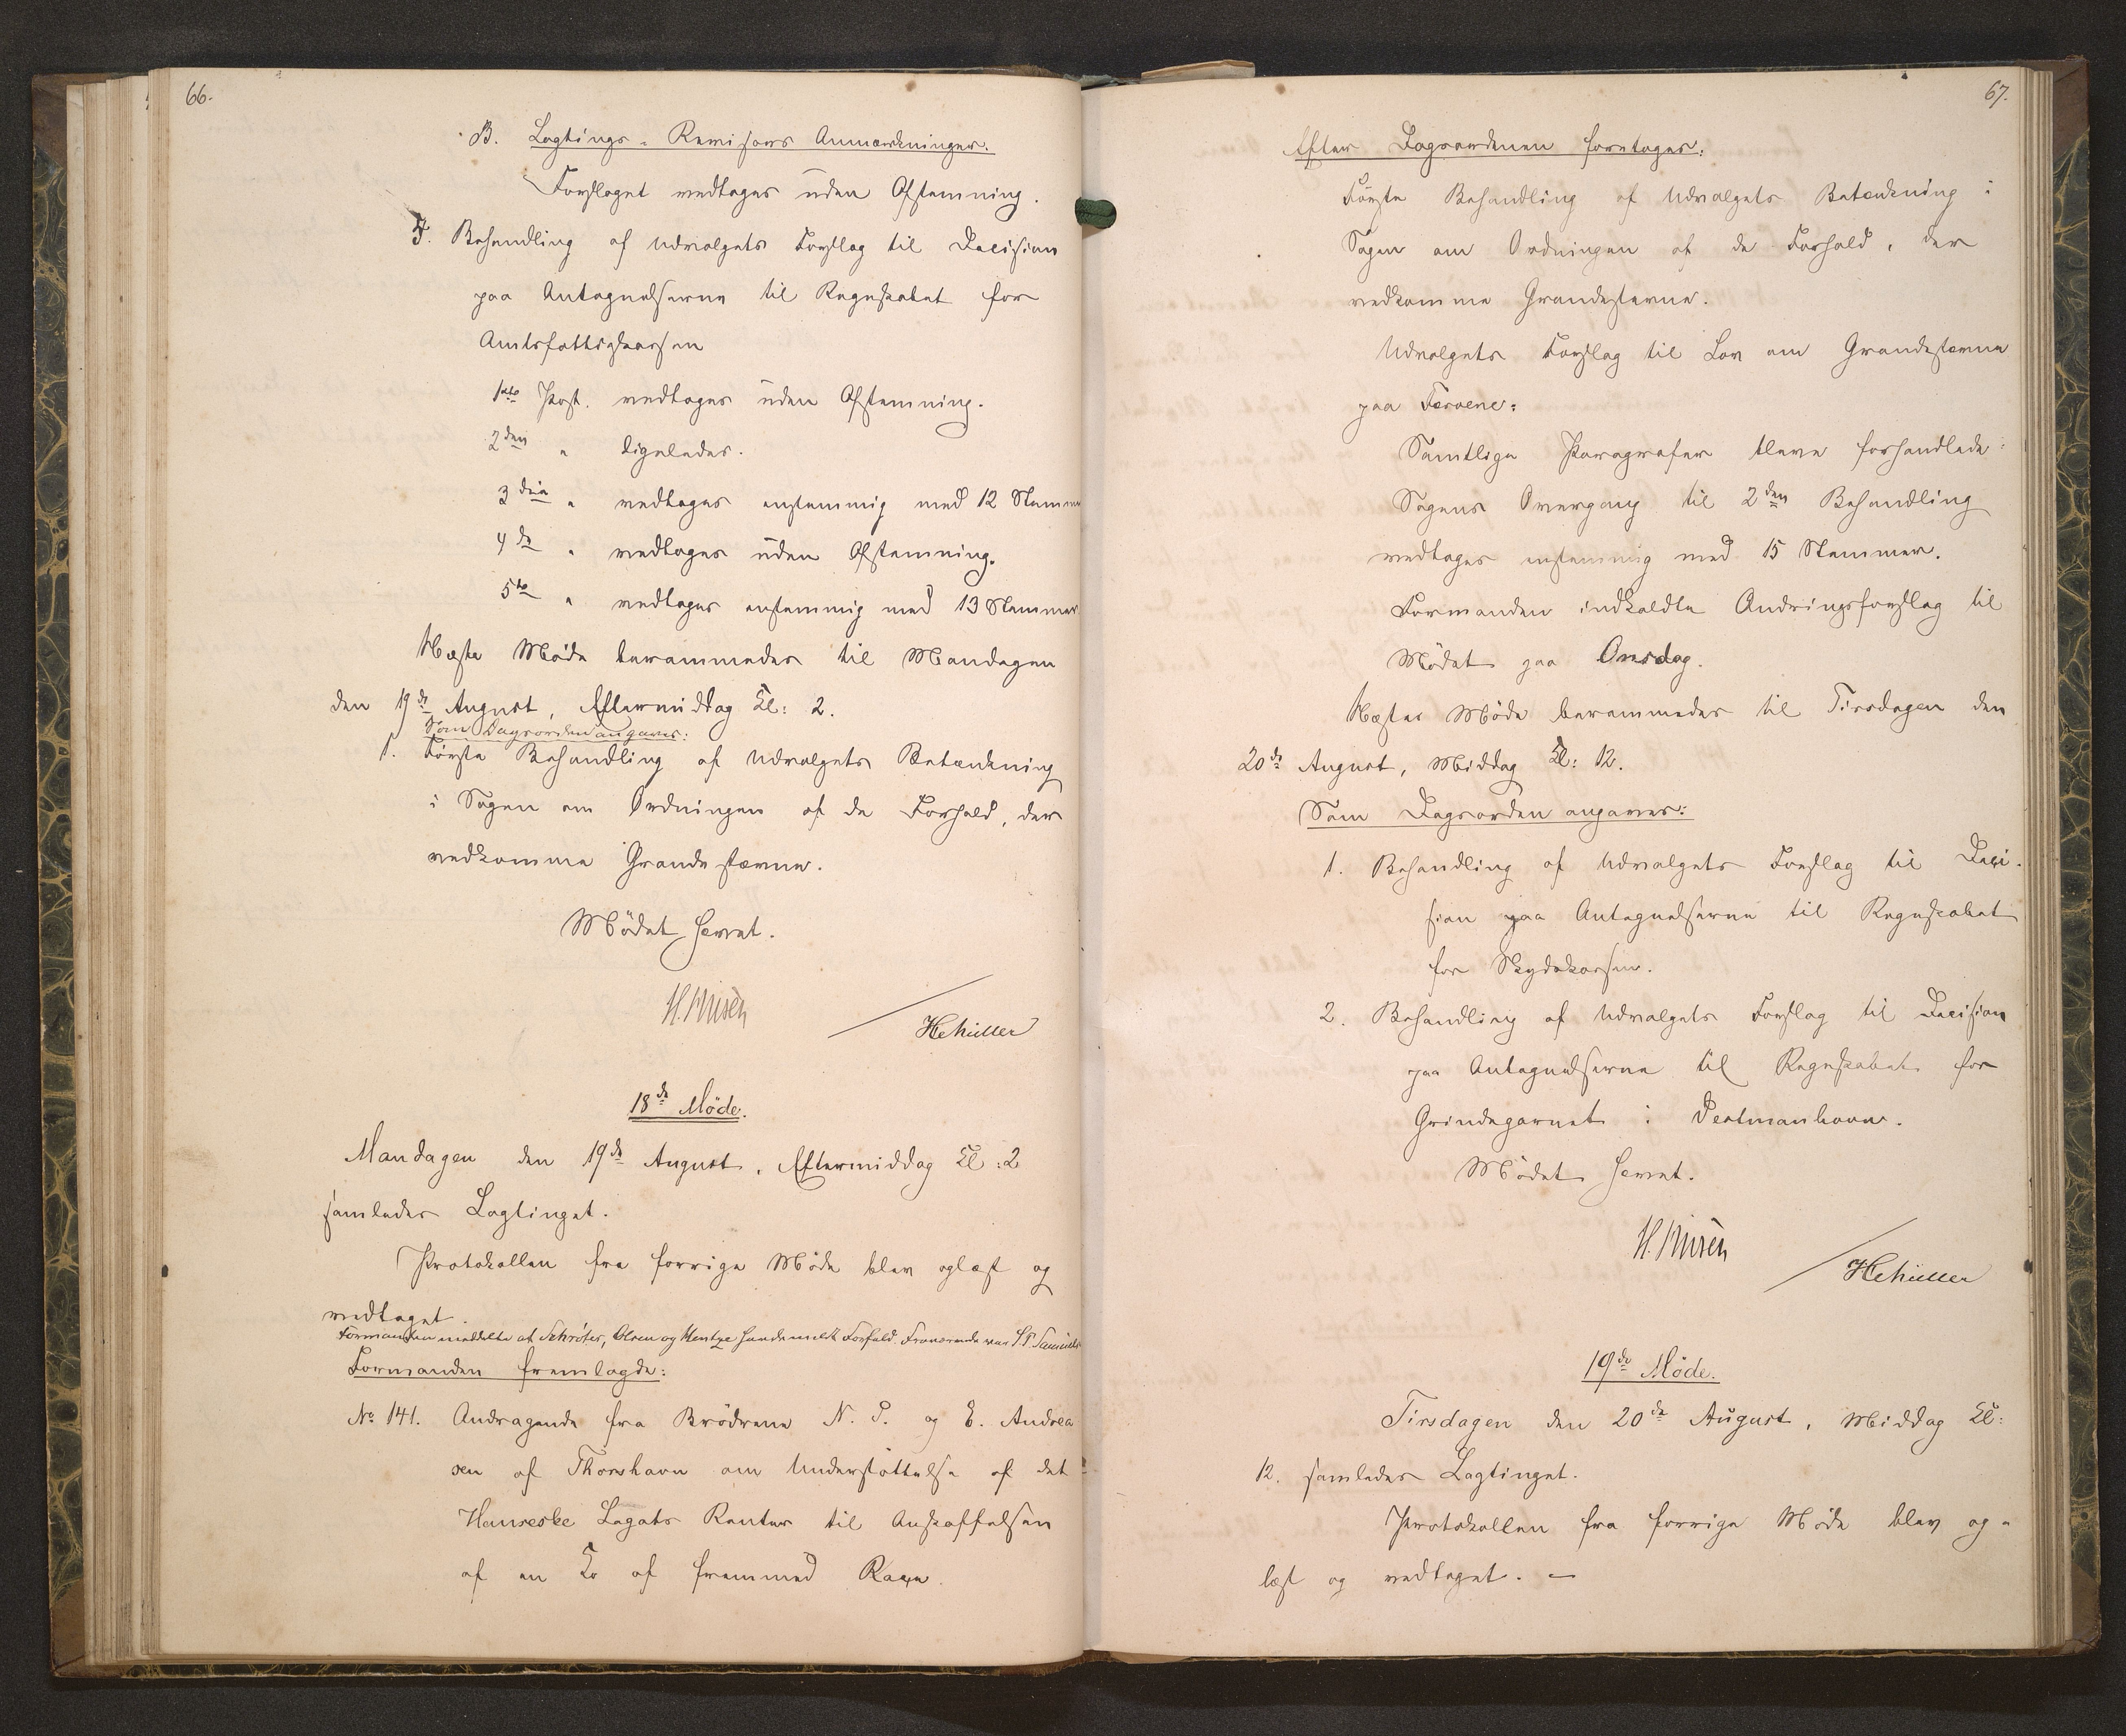 66.
B. Lagtings-Revisors Anmærkninger.
Forslaget vedtages uden Afstemning.
5. Behandling af Udvalgets Forslag til Decision
paa Antegnelserne til Regnskabet for
Amtsfattigkassen
1ste Post. vedtages uden Afstemning.
2den " ligeledes.
3die " vedtages enstemmig med 12 Stemmer
4de " vedtages uden Afstemning.
5te " vedtages enstemmig med 13 Stemmer.
Næste Møde berammedes til Mandagen
den 19de August, Eftermiddag Kl: 2.
Som Dagsorden angaves:
1. Første Behandling af Udvalgets Betænkning
i Sagen om Ordningen af de Forhold, der
vedkomme Grandestævne.
Mødet hævet.
H. Müller
18de Møde.
Mandagen den 19de August, Eftermiddag Kl: 2
samledes Lagtinget.
Protokollen fra forrige Møde blev oplæst og
vedtaget.
Formanden meddelte at Schrøter, Olsen og Hentze havde meldt Forfald. Fraværende var
Formanden fremlagde:
No 141. Andragende fra Brødrene N. P. og E. Andrea
sen af Thorshavn om Understøttelse af det
Hansenske Legats Renter til Anskaffelsen
af en Ko af fremmed Race.
67.
Efter Dagsordenen foretoges:
Første Behandling af Udvalgets Betænkning i
Sagen om Ordningen af de Forhold, der
vedkomme Grandestævne.
Udvalgets Forslag til Lov om Grandestævne
paa Færøene:
Samtlige Paragrafer bleve forhandlede.
Sagens Overgang til 2den Behandling
vedtages enstemmig med 15 Stemmer.
Formanden indkaldte Ændringsforslag til
Mødet paa Onsdag.
Næste Møde berammedes til Tirsdagen den
20de August, Middag Kl: 12.
Som Dagsorden angaves:
1. Behandling af Udvalgets Forslag til Deci-
sion paa Antegnelserne til Regnskabet
for Skydskassen.
2. Behandling af Udvalgets Forslag til Decision
paa Antegnelserne til Regnskabet for
Grindegarnet i Vestmanhavn.
Mødet hævet.
H. Müller
19de Møde.
Tirsdagen den 20de August, Middag Kl:
12. samledes Lagtinget.
Protokollen fra forrige Møde blev op-
læst og vedtaget. —